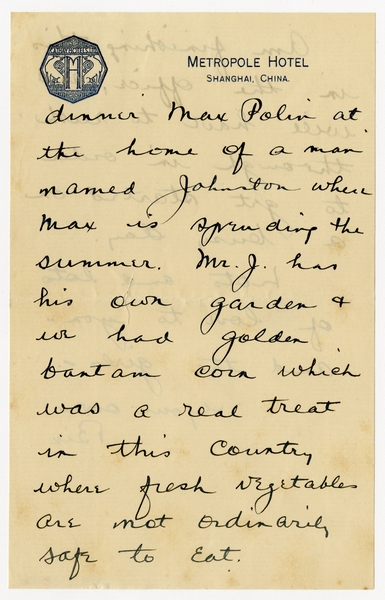 METROPOLE HOTEL
SHANGHAI, CHINA.
dinner Max Polin at
the home of a man
named Johnston where
Max is spending the
summer. Mr. J. has
his own garden &
we had golden
bantam corn which
was a real treat
in this country
where fresh vegetables
are not ordinarily
safe to eat.